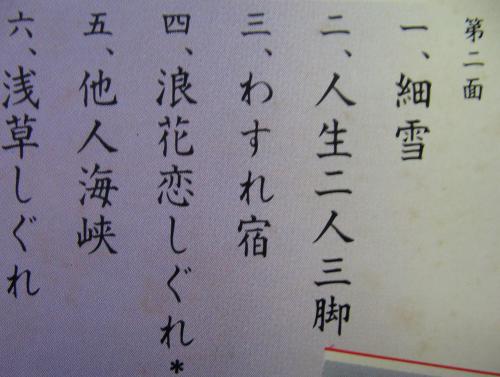 第二面
一、細雪
二、人生二人三脚
三、わすれ宿
四、浪花恋しぐれ*
五、他人海峡
六、浅草しぐれ